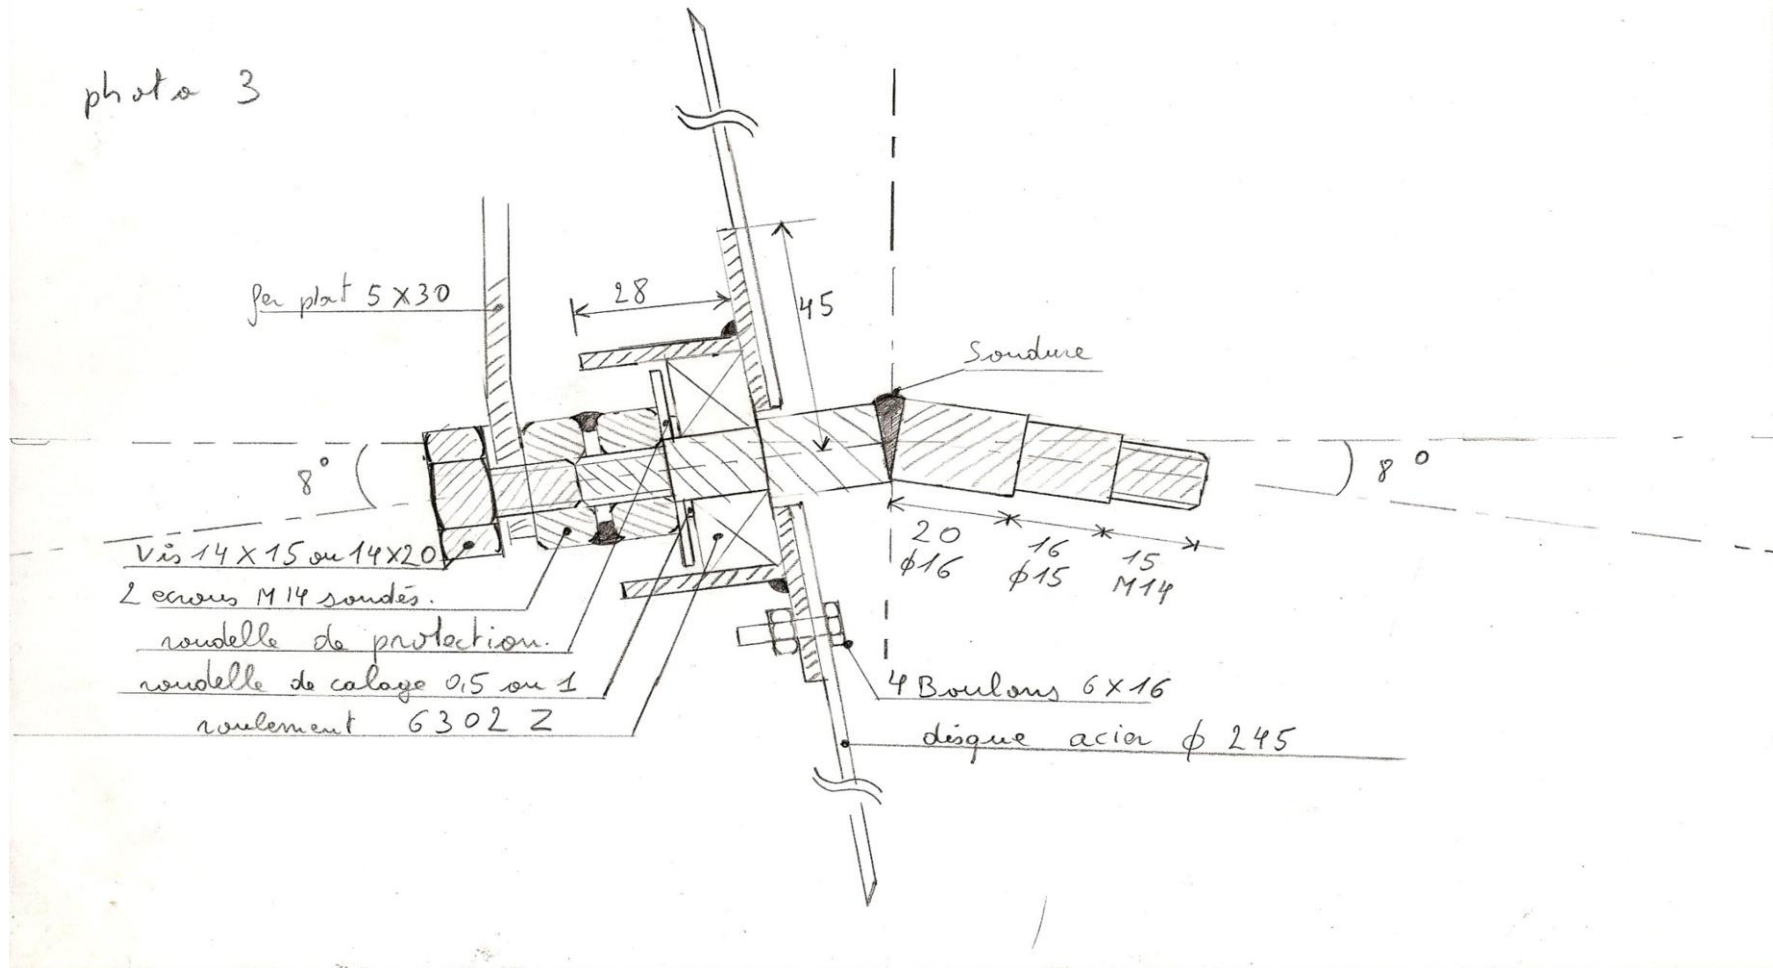 photo 3
fer plat 5 X 30
28
45
Soudure
8°
8°
Vis 14 X 15 ou 14 X 20
2 ecrous M 14 soudés.
rondelle de protection.
rondelle de calage 0,5 ou 1
roulement 6302 Z
20
ϕ16
16
ϕ15
15
M14
4 Boulons 6 X 16
disque acier ϕ 245